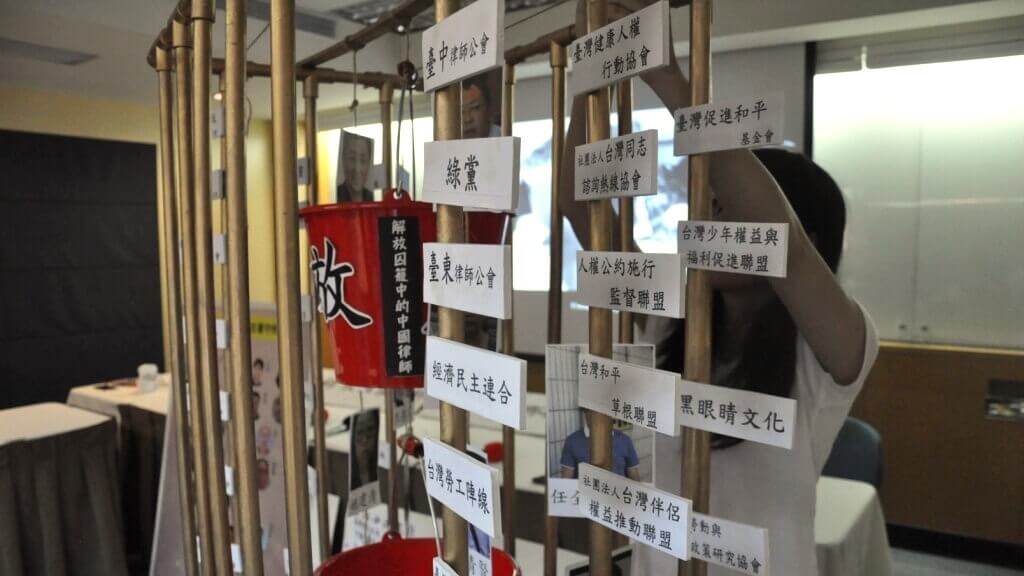 臺中律師公會
綠黨
臺東律師公會
經濟民主連合
台灣勞工陣線
放
解放囚籠中的中國律師
臺灣健康人權
行動協會
社團法人台灣同志
諮詢熱線協會
人權公約施行
監督聯盟
台灣和平
草根聯盟
社團法人台灣伴侶
權益推動聯盟
臺灣促進和平
基金會
台灣少年權益與
福利促進聯盟
黑眼睛文化
勞動與
政策研究協會
任全